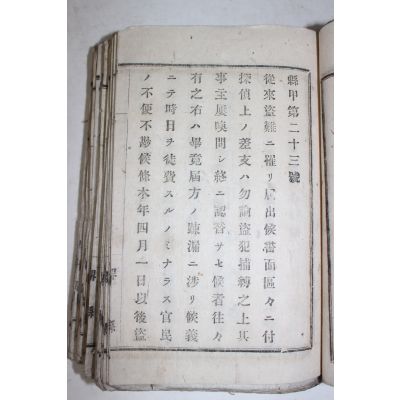 縣甲第二十三號
從來盜難ニ罹リ届出候書面區々ニ付
探偵上ノ差支ハ勿論盜犯捕縛之上其
事主屡喚問シ終ニ認替サセ候者往々
有之右ハ畢竟届方ノ疎漏ニ渉リ候義
ニテ時日ヲ徒費スルノミナラス官民
ノ不便不尠候條本年四月一日以後盜